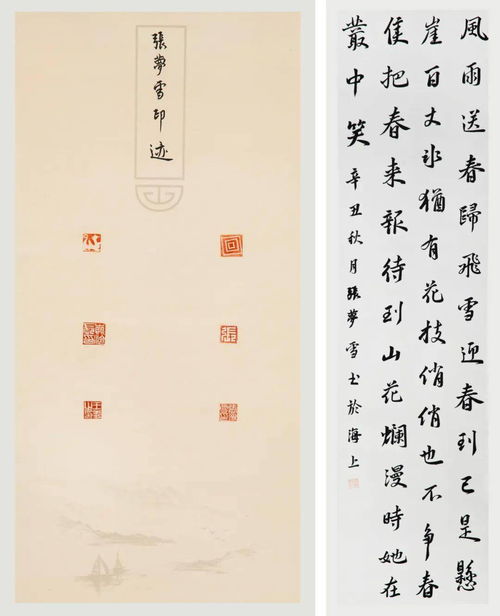 張夢雪印迹
風雨送春歸飛雪迎春到已是懸
崖百丈冰猶有花枝俏俏也不争春
把春来報待到山花爛漫時她在
叢中笑 辛丑秋月張夢雪书於海上